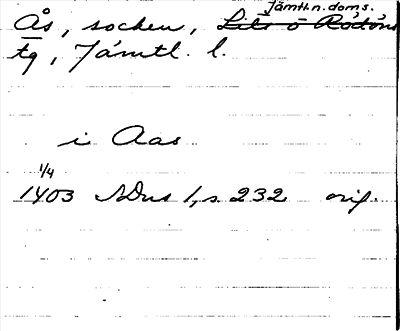 Jämtl.n.doms.
Ås, socken, Lits o Rödöns
tg, Jämtl. l.
i Aas
1/4
1403 NDns 1, s. 232 orig.